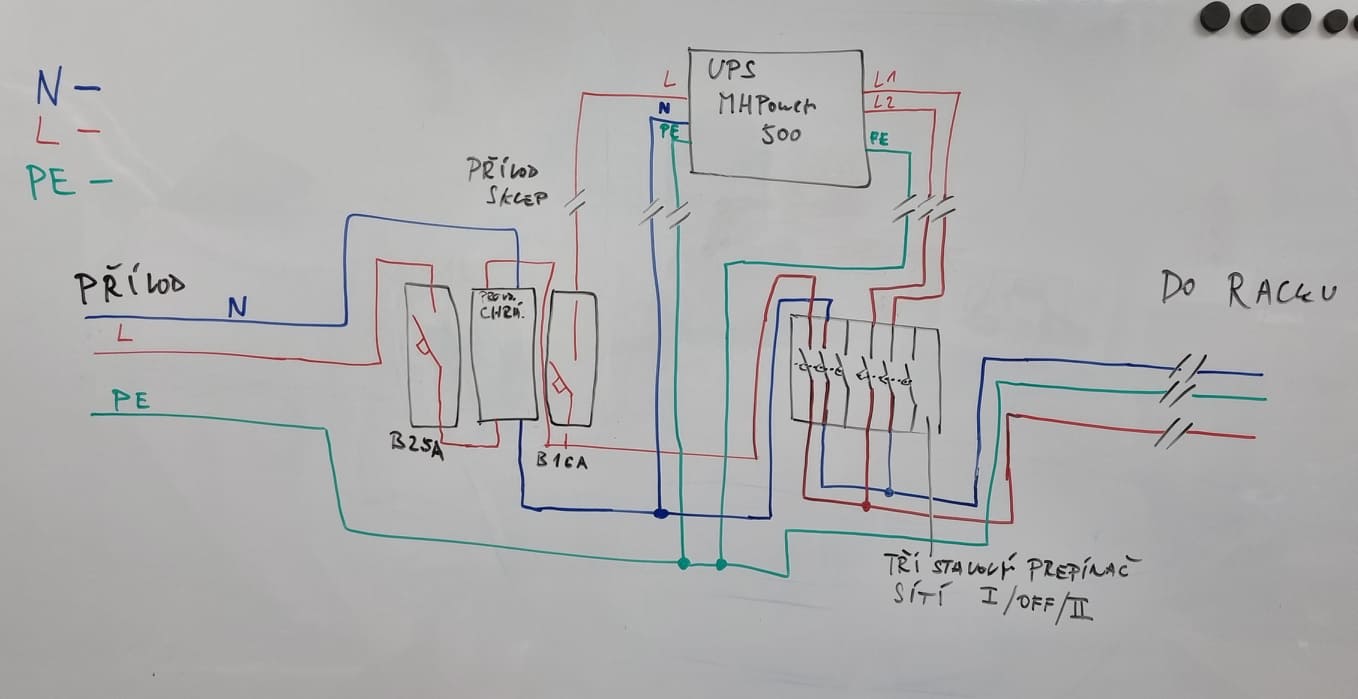 N –
L –
PE –
UPS
MHPower
500
L
N
PE
L1
L2
PE
PŘÍVOD
SKLEP
PŘÍVOD
N
L
PE
CHRÁ.
B25A
B16A
DO RACKU
TŘÍSTAVOVÝ PREPÍNAČ
SÍTÍ I/OFF/II